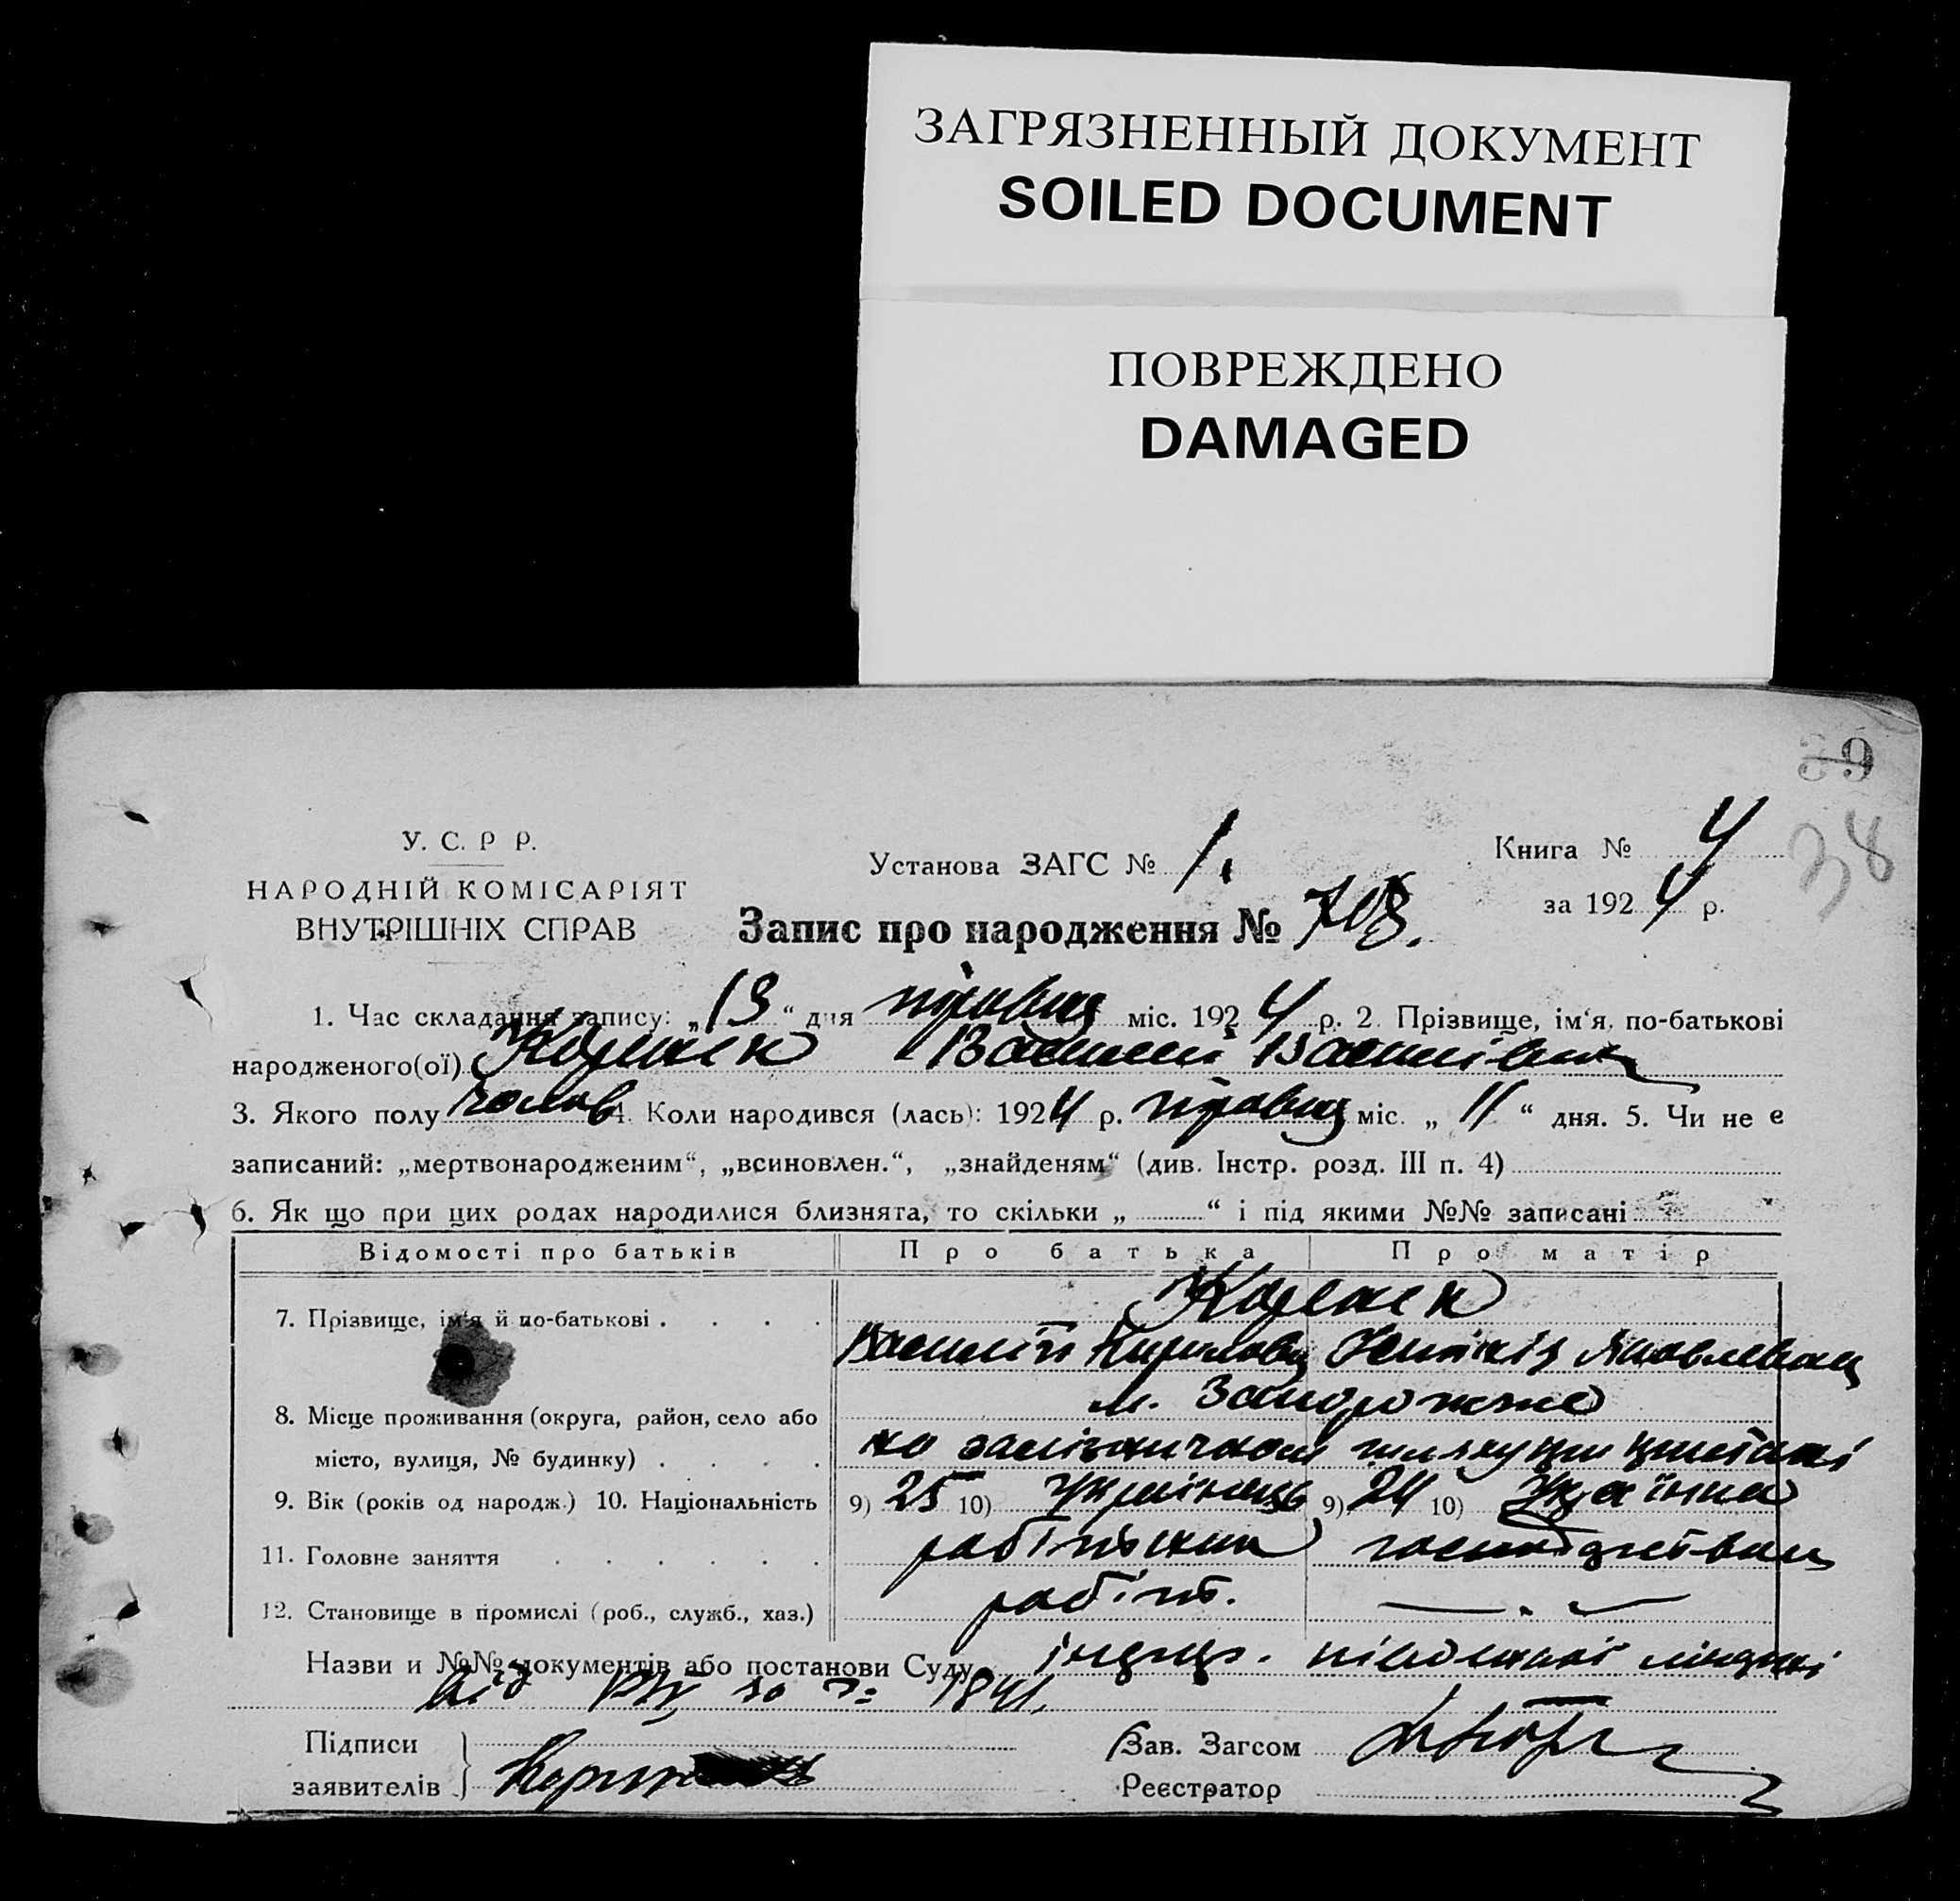 ЗАГРЯЗНЕННЫЙ ДОКУМЕНТ
SOILED DOCUMENT
ПОВРЕЖДЕНО
DAMAGED
39
38
У. С. Р Р.
НАРОДНІЙ КОМІСАРІЯТ
ВНУТРІШНІХ СПРАВ
Установа ЗАГС № 1.
Книга № 4
за 1924 р.
Запис про народження №
1. Час складання запису: „13“ дня травця міс. 1924 р. 2. Прізвище, ім‘я, по-батькові
народженого(ої) Василій Васильович
3. Якого полу чолов 4. Коли народився (лась): 1924 р. травця міс. „11“ дня. 5. Чи не є
записаний: „мертвонародженим“, „всиновлен.“, „знайденям“ (див. Інстр. розд. III п. 4)
6. Як що при цих родах народилися близнята, то скільки „ “ і під якими №№ записані
Відомості про батьків Про батька Про матір
7. Прізвище, ім‘я й по-батькові
Василій Кирилович Яковлевна
м. Запорожже
8. Місце проживання (округа, район, село або
місто, вулиця, № будинку)
9. Вік (років од народж.) 10. Національність 9) 25 10) Українець 9) 24 10) Українка
11. Головне заняття робітник
12. Становище в промислі (роб., служб., хаз.) робіт.
Назви и №№ документів або постанови Суду
від
Підписи
заявителів
Зав. Загсом
Реєстратор